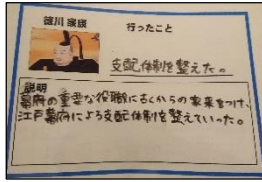 徳川 家康
行ったこと
支配体制を整えた。
説明
幕府の重要な役職に古くからの家来をつけ、
江戸幕府による支配体制を整えていった。